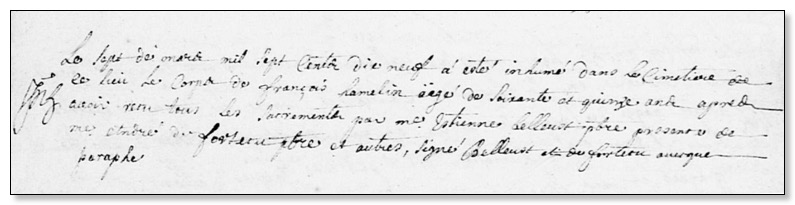 Le sept de mars mil sept Cents dix neuf a esté inhumé dans le Cimetiere de
ce lieu le Corps de françois hamelin aagé de soixante et quinze ans apres
avoir recu tous les sacrements par me Estienne belleust pbre presence de
me André de forteau pbre et autres, signé Belleust et de forteau avecque
paraphe